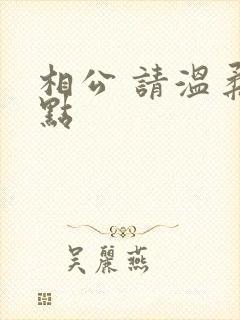 相公 請溫柔
點
吳麗燕